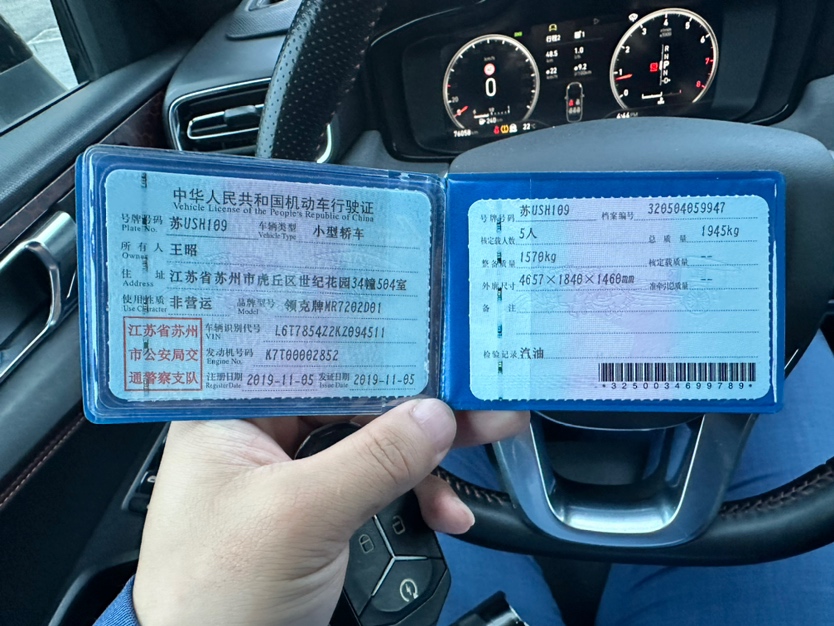 中华人民共和国机动车行驶证
Vehicle License of the People's Republic of China
号牌号码 苏USH109 车辆类型 小型轿车
Plate No. Vehicle Type
所有人 王昭
Owner
住址 江苏省苏州市虎丘区世纪花园34幢504室
Address
使用性质 非营运 品牌型号 领克牌MR7202D01
Use Character Model
江苏省苏州
市公安局交
通警察支队
车辆识别代号 L6T7854Z2KZ094511
VIN
发动机号码 K7T00002852
Engine No.
注册日期 2019-11-05 发证日期 2019-11-05
Register Date Issue Date
号牌号码 苏USH109 档案编号 320504059947
核定载人数 5人 总质量 1945kg
整备质量 1570kg 核定载质量 --
外廓尺寸 4657×1840×1460mm 准牵引总质量 --
备注
检验记录 汽油
*3250034699789*
km/h
0
20
240
48.5 1.0
22 9.2
R
N
P
D
76058 km
22℃
4:44 PM